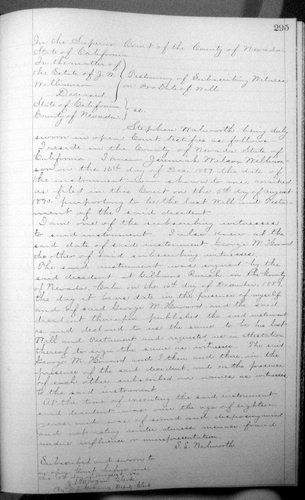 295
In the Superior Court of the County of Nevada
State of California
In the matter of
the Estate of J. N. Testimony of Subscribing Witness
on Probate of Will
Deceased
State of California
County of Nevada ss
Stephen Walworth being duly
sworn in open Court testifies as follows:
I reside in the County of Nevada State of
California I knew Jeremiah Nelson
on the 16th day of Dec. the date of
the instrument now shown to me marked
as filed in this Court on the day of August
purporting to be the last Will and Testa-
ment of the said decedent
I am one of the subscribing witnesses
to said instrument I also knew at the
said date of said instrument George M.
the other of said subscribing witnesses
The said instrument was signed by the
said decedent at Ranch in the County
of Nevada, Calif. on the 16th day of December
the day it bears date in the presence of myself
and of said George M. and the said
decedent thereupon published the said instrument
as and declared to us the same to be his last
Will and Testament and requested us in attestation
thereof to sign the same as witnesses The said
George M. and I then and there in the
presence of the said decedent, and in the presence
of each other subscribed our names as witnesses
to the said instrument
At the time of executing the said instrument
said decedent was over the age of eighteen
years and was of sound and disposing mind
and not acting under duress menace fraud
undue influence or misrepresentation
S. Walworth
Subscribed and sworn to
in open Court before me
Clerk